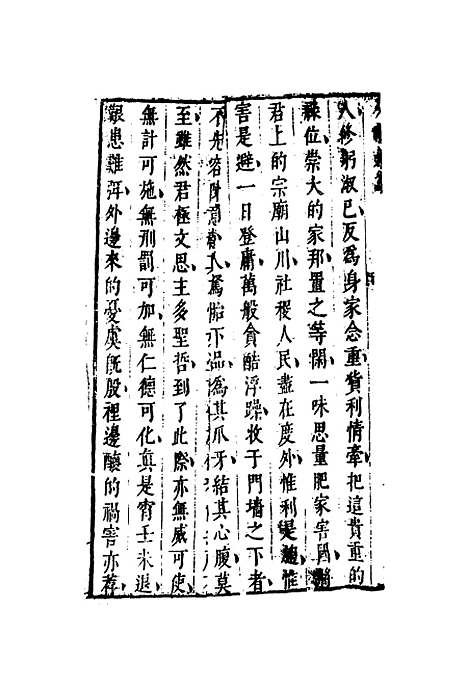 人修躬淑己反爲身家念重貨利情牽把這貴重的
祿位崇大的家邦置之等閑一味思量肥家害國醫
君上的宗廟山川社稷人民盡在度外惟利是趨惟
害是避一日登庸萬般貪酷浮躁收于門墻之下者
不先容
至雖然君極文思主多聖哲到了此際亦無威可使
無計可施無刑罰可加無仁德可化真是宵壬未退
艱患難弭外邊來的憂虞旣殷裡邊釀的禍害亦荐